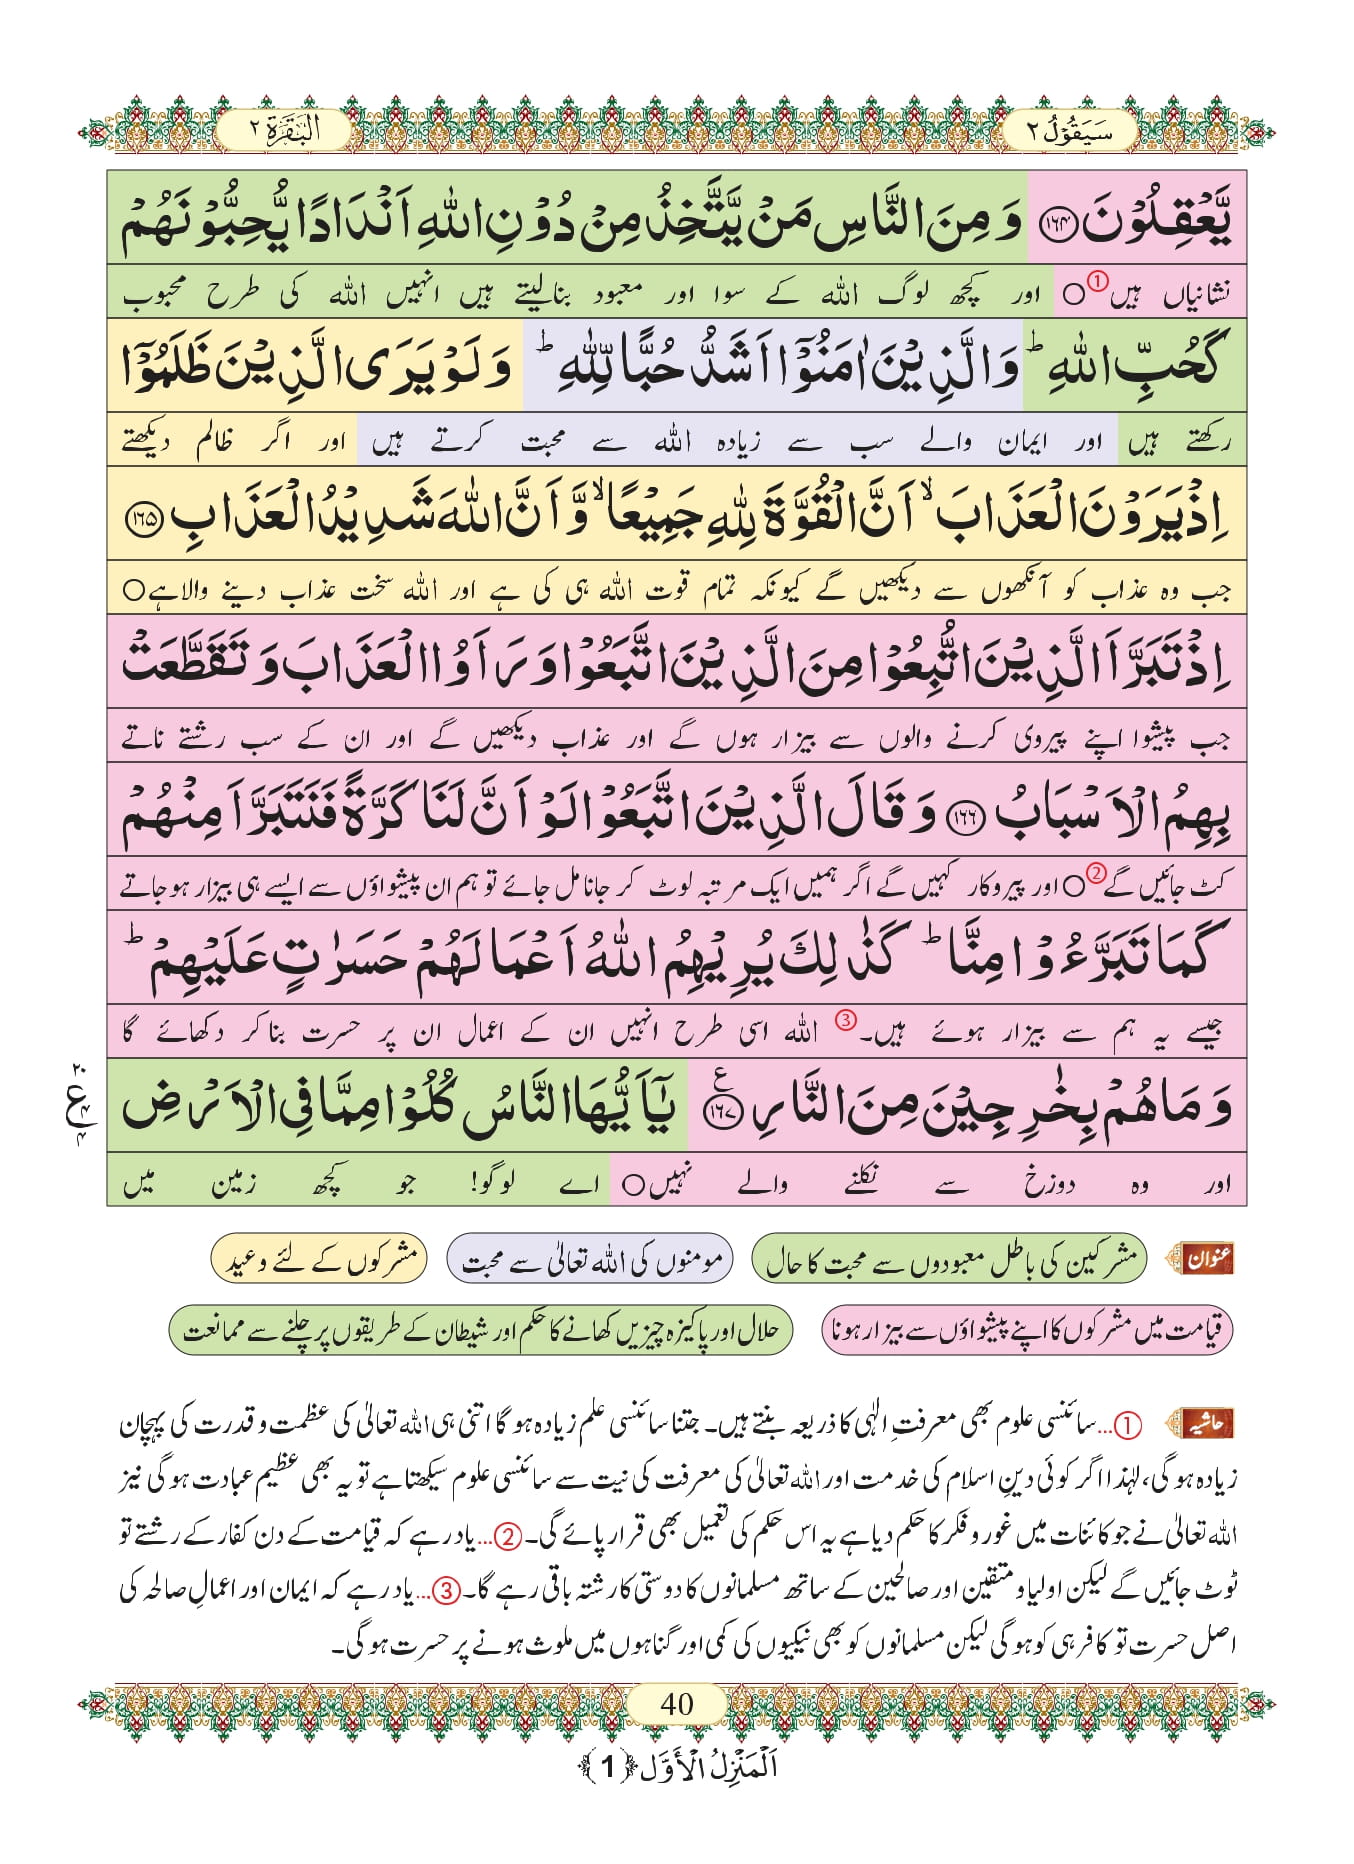 سَیَقُوْلُ ٢
البَقَرَة ٢
یَّعْقِلُوْنَ ﴿۱۶۴﴾ وَ مِنَ النَّاسِ مَنْ یَّتَّخِذُ مِنْ دُوْنِ اللّٰهِ اَنْدَادًا یُّحِبُّوْنَهُمْ
نشانیاں ہیں ① ○ اور کچھ لوگ اللہ کے سوا اور معبود بنالیتے ہیں انہیں اللہ کی طرح محبوب
كَحُبِّ اللّٰهِؕ وَ الَّذِیْنَ اٰمَنُوْۤا اَشَدُّ حُبًّا لِّلّٰهِؕ وَ لَوْ یَرَى الَّذِیْنَ ظَلَمُوْۤا
رکھتے ہیں اور ایمان والے سب سے زیادہ اللہ سے محبت کرتے ہیں اور اگر ظالم دیکھتے
اِذْ یَرَوْنَ الْعَذَابَۙ اَنَّ الْقُوَّةَ لِلّٰهِ جَمِیْعًاۙ وَّ اَنَّ اللّٰهَ شَدِیْدُ الْعَذَابِ ﴿۱۶۵﴾
جب وہ عذاب کو آنکھوں سے دیکھیں گے کیونکہ تمام قوت اللہ ہی کی ہے اور اللہ سخت عذاب دینے والا ہے ○
اِذْ تَبَرَّاَ الَّذِیْنَ اتُّبِعُوْا مِنَ الَّذِیْنَ اتَّبَعُوْا وَ رَاَوُا الْعَذَابَ وَ تَقَطَّعَتْ
جب پیشوا اپنے پیروی کرنے والوں سے بیزار ہوں گے اور عذاب دیکھیں گے اور ان کے سب رشتے ناتے
بِهِمُ الْاَسْبَابُ ﴿۱۶۶﴾ وَ قَالَ الَّذِیْنَ اتَّبَعُوْا لَوْ اَنَّ لَنَا كَرَّةً فَنَتَبَرَّاَ مِنْهُمْ
کٹ جائیں گے ② ○ اور پیروکار کہیں گے اگر ہمیں ایک مرتبہ لوٹ کر جانا مل جائے تو ہم ان پیشواؤں سے ایسے ہی بیزار ہوجاتے
كَمَا تَبَرَّءُوْا مِنَّاؕ كَذٰلِكَ یُرِیْهِمُ اللّٰهُ اَعْمَالَهُمْ حَسَرٰتٍ عَلَیْهِمْؕ
جیسے یہ ہم سے بیزار ہوئے ہیں۔ ③ اللہ اسی طرح انہیں ان کے اعمال ان پر حسرت بنا کر دکھائے گا
وَ مَا هُمْ بِخٰرِجِیْنَ مِنَ النَّارِ ﴿۱۶۷﴾ ع یٰۤاَیُّهَا النَّاسُ كُلُوْا مِمَّا فِی الْاَرْضِ
۲۰ ع ۴ ۴
اور وہ دوزخ سے نکلنے والے نہیں ○ اے لوگو! جو کچھ زمین میں
عنوان مشرکین کی باطل معبودوں سے محبت کا حال مومنوں کی اللہ تعالیٰ سے محبت مشرکوں کے لئے وعید
قیامت میں مشرکوں کا اپنے پیشواؤں سے بیزار ہونا حلال اور پاکیزہ چیزیں کھانے کا حکم اور شیطان کے طریقوں پر چلنے سے ممانعت
حاشیہ ①... سائنسی علوم بھی معرفتِ الٰہی کا ذریعہ بنتے ہیں۔ جتنا سائنسی علم زیادہ ہوگا اتنی ہی اللہ تعالیٰ کی عظمت و قدرت کی پہچان
زیادہ ہوگی، لہٰذا اگر کوئی دینِ اسلام کی خدمت اور اللہ تعالیٰ کی معرفت کی نیت سے سائنسی علوم سیکھتا ہے تو یہ بھی عظیم عبادت ہوگی نیز
اللہ تعالیٰ نے جو کائنات میں غور و فکر کا حکم دیا ہے یہ اس حکم کی تعمیل بھی قرار پائے گی۔ ②... یاد رہے کہ قیامت کے دن کفار کے رشتے تو
ٹوٹ جائیں گے لیکن اولیا و متقین اور صالحین کے ساتھ مسلمانوں کا دوستی کا رشتہ باقی رہے گا۔ ③... یاد رہے کہ ایمان اور اعمالِ صالحہ کی
اصل حسرت تو کافر ہی کو ہوگی لیکن مسلمانوں کو بھی نیکیوں کی کمی اور گناہوں میں ملوث ہونے پر حسرت ہوگی۔
40
اَلْمَنْزِلُ الْأَوَّل ﴿1﴾